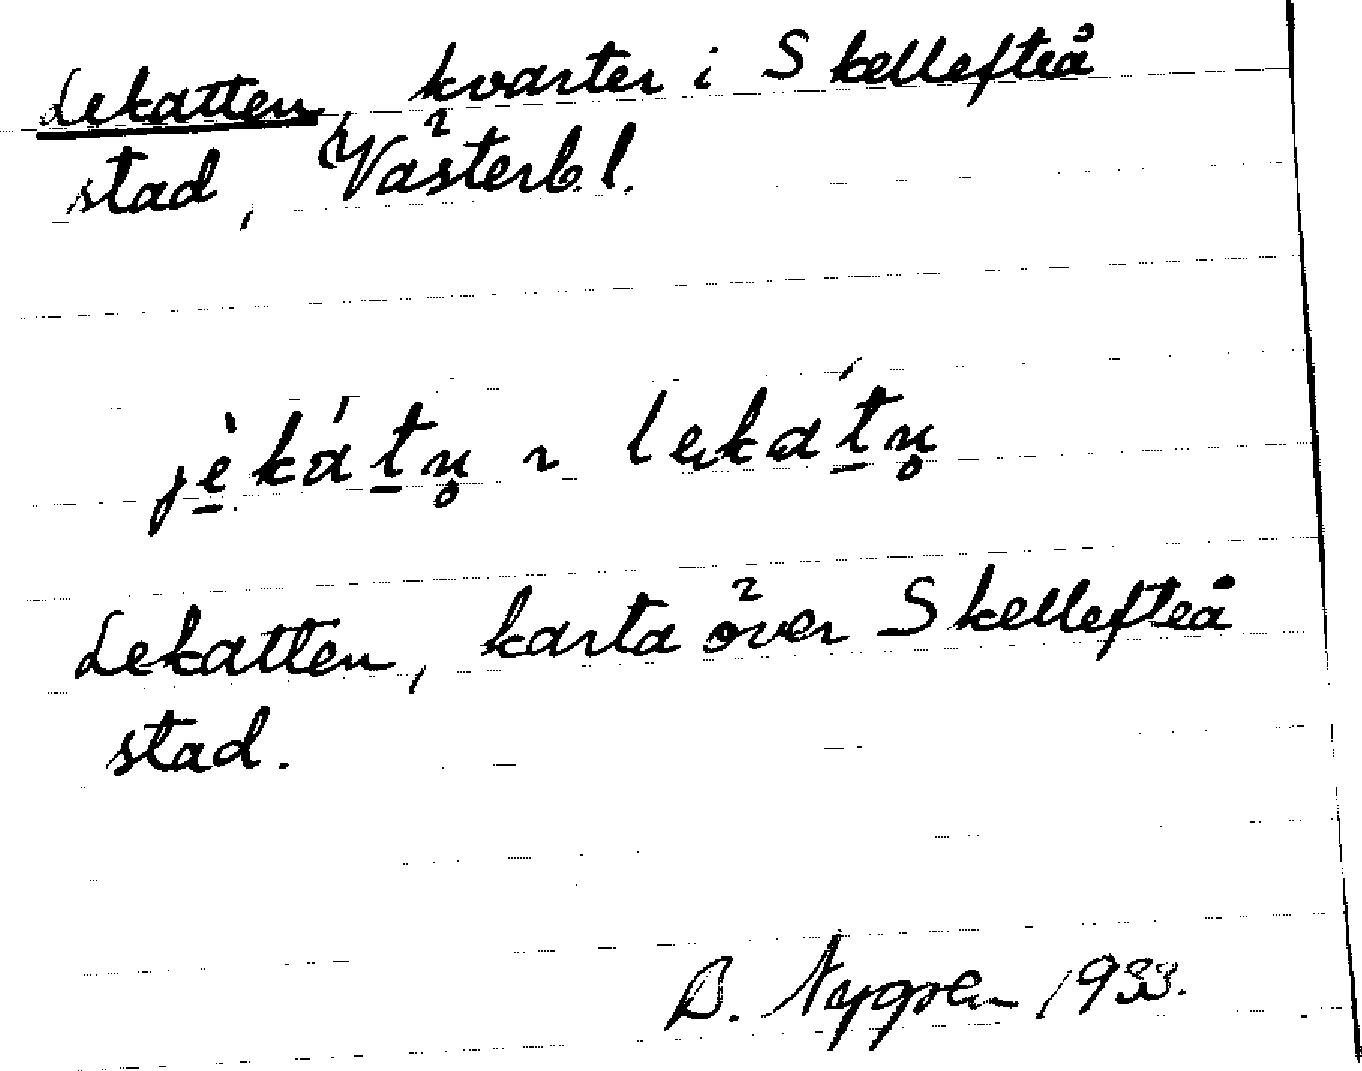 Lekatten, kvarter i Skellefteå
stad, Västerb. l.
jè̱káṯn̥ ~ lekáṯn̥
Lekatten, karta över Skellefteå
stad.
B. Nygren 1933.